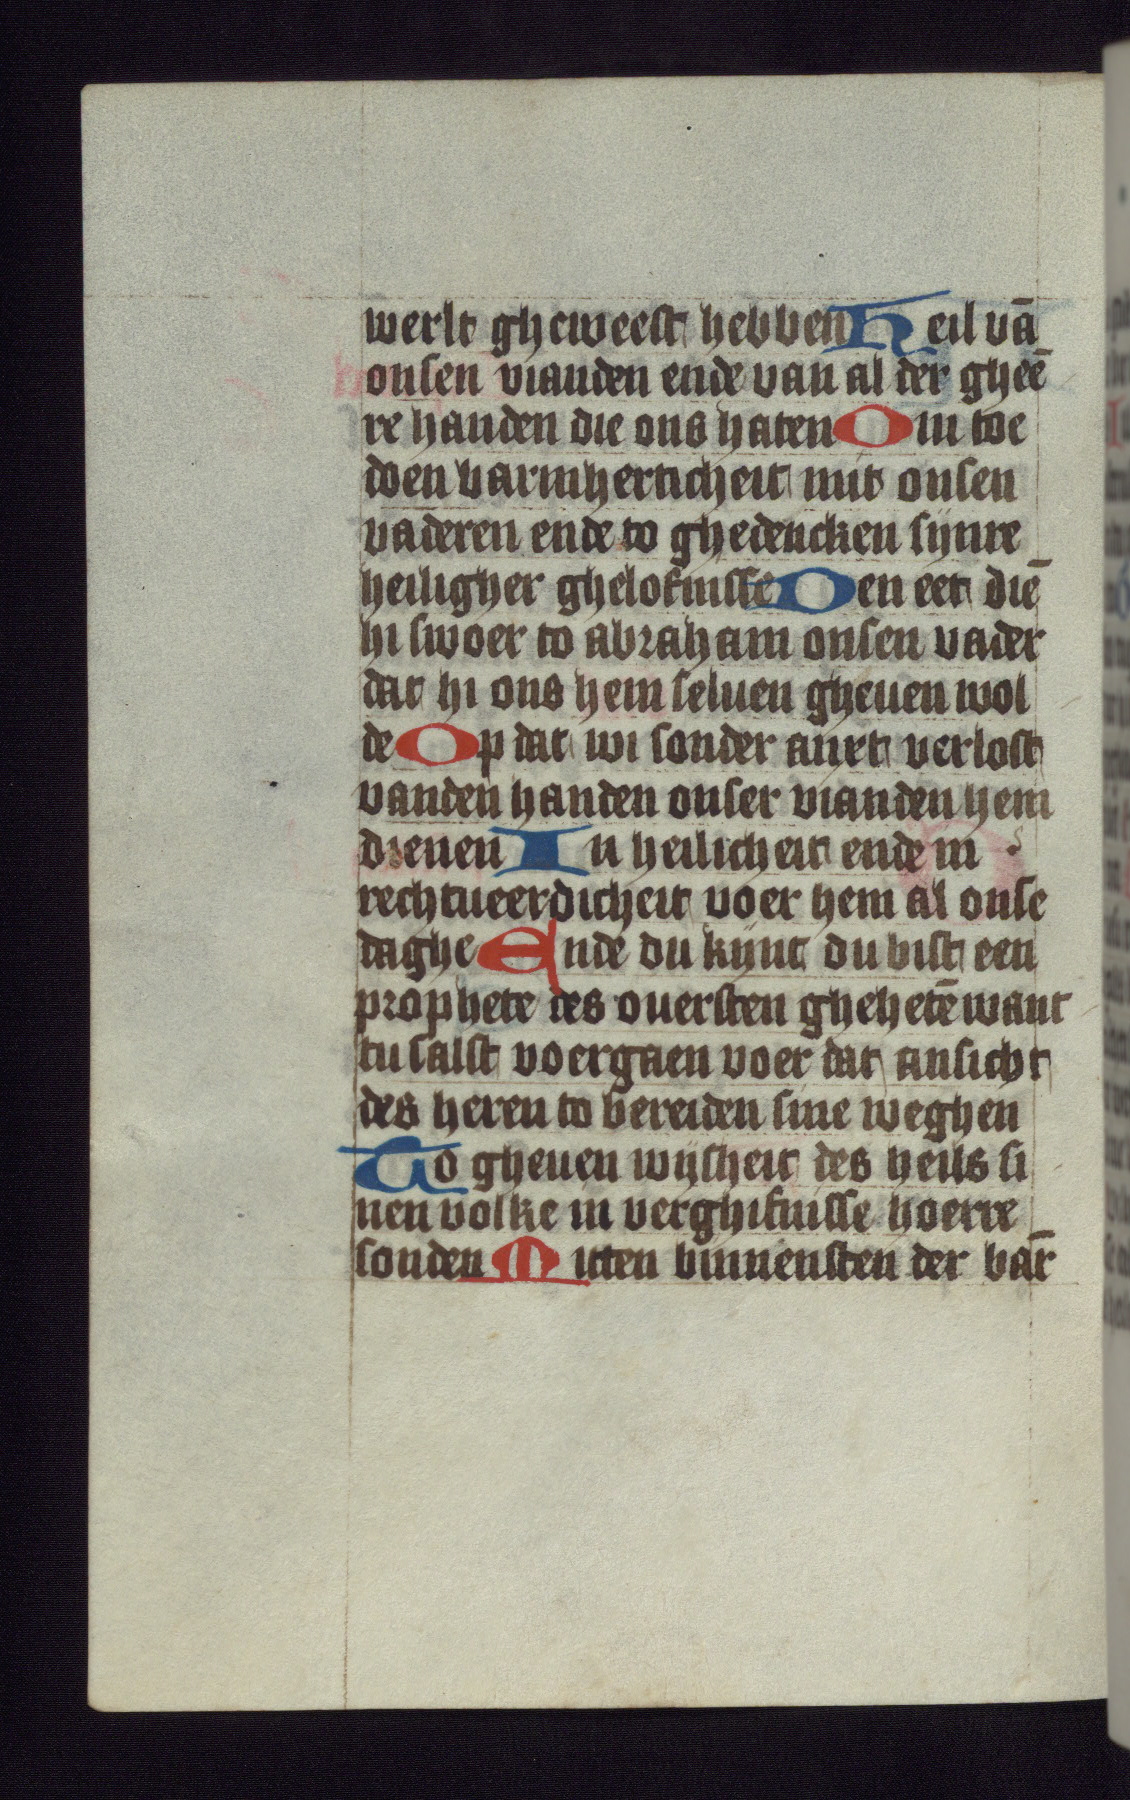 werlt gheweest hebben Heil vā
onsen vianden ende van al der gheē
re handen die ons haten Om toe
doen barmherticheit mit onsen
vaderen ende to ghedencken sijnre
heiligher ghelofnisse Den eet diē
hi swoer to abraham onsen vader
dat hi ons hem seluen gheuen wol
de Op dat wi sonder anxt verlost
vanden handen onser vianden hem
dienen In heilicheit ende in
rechtueerdicheit voer hem al onse
daghe Ende du kijnt du bist een
prophete des ouersten ghehetē want
tu salst voergaen voer dat ansicht
des heren to bereiden sine weghen
To gheuen wijsheit des heils si
nen volke in verghifnisse hoerre
sonden Mitten binnensten der bar̄